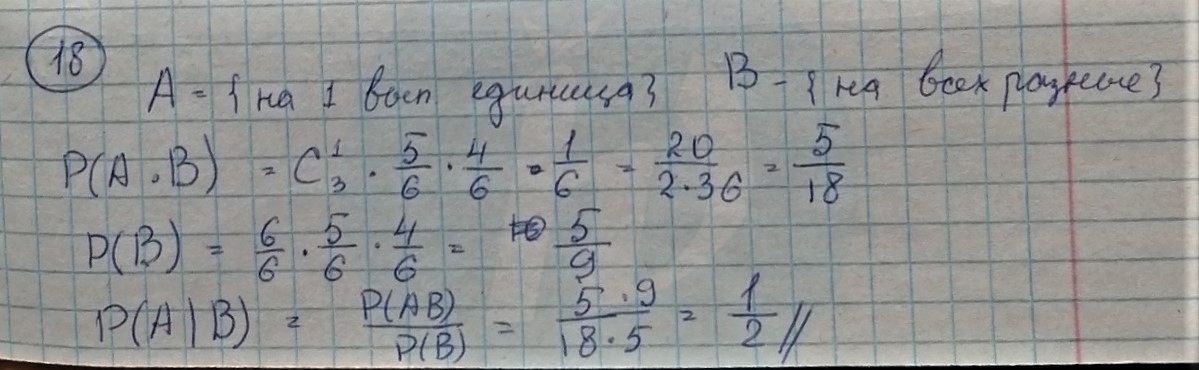 18
A = {на 1 вып единица} B - {на всех разные}
P(A · B) = C₃¹ · 5/6 · 4/6 · 1/6 = 20/(2·36) = 5/18
P(B) = 6/6 · 5/6 · 4/6 = 5/9
P(A|B) = P(AB)/P(B) = (5·9)/(18·5) = 1/2 //